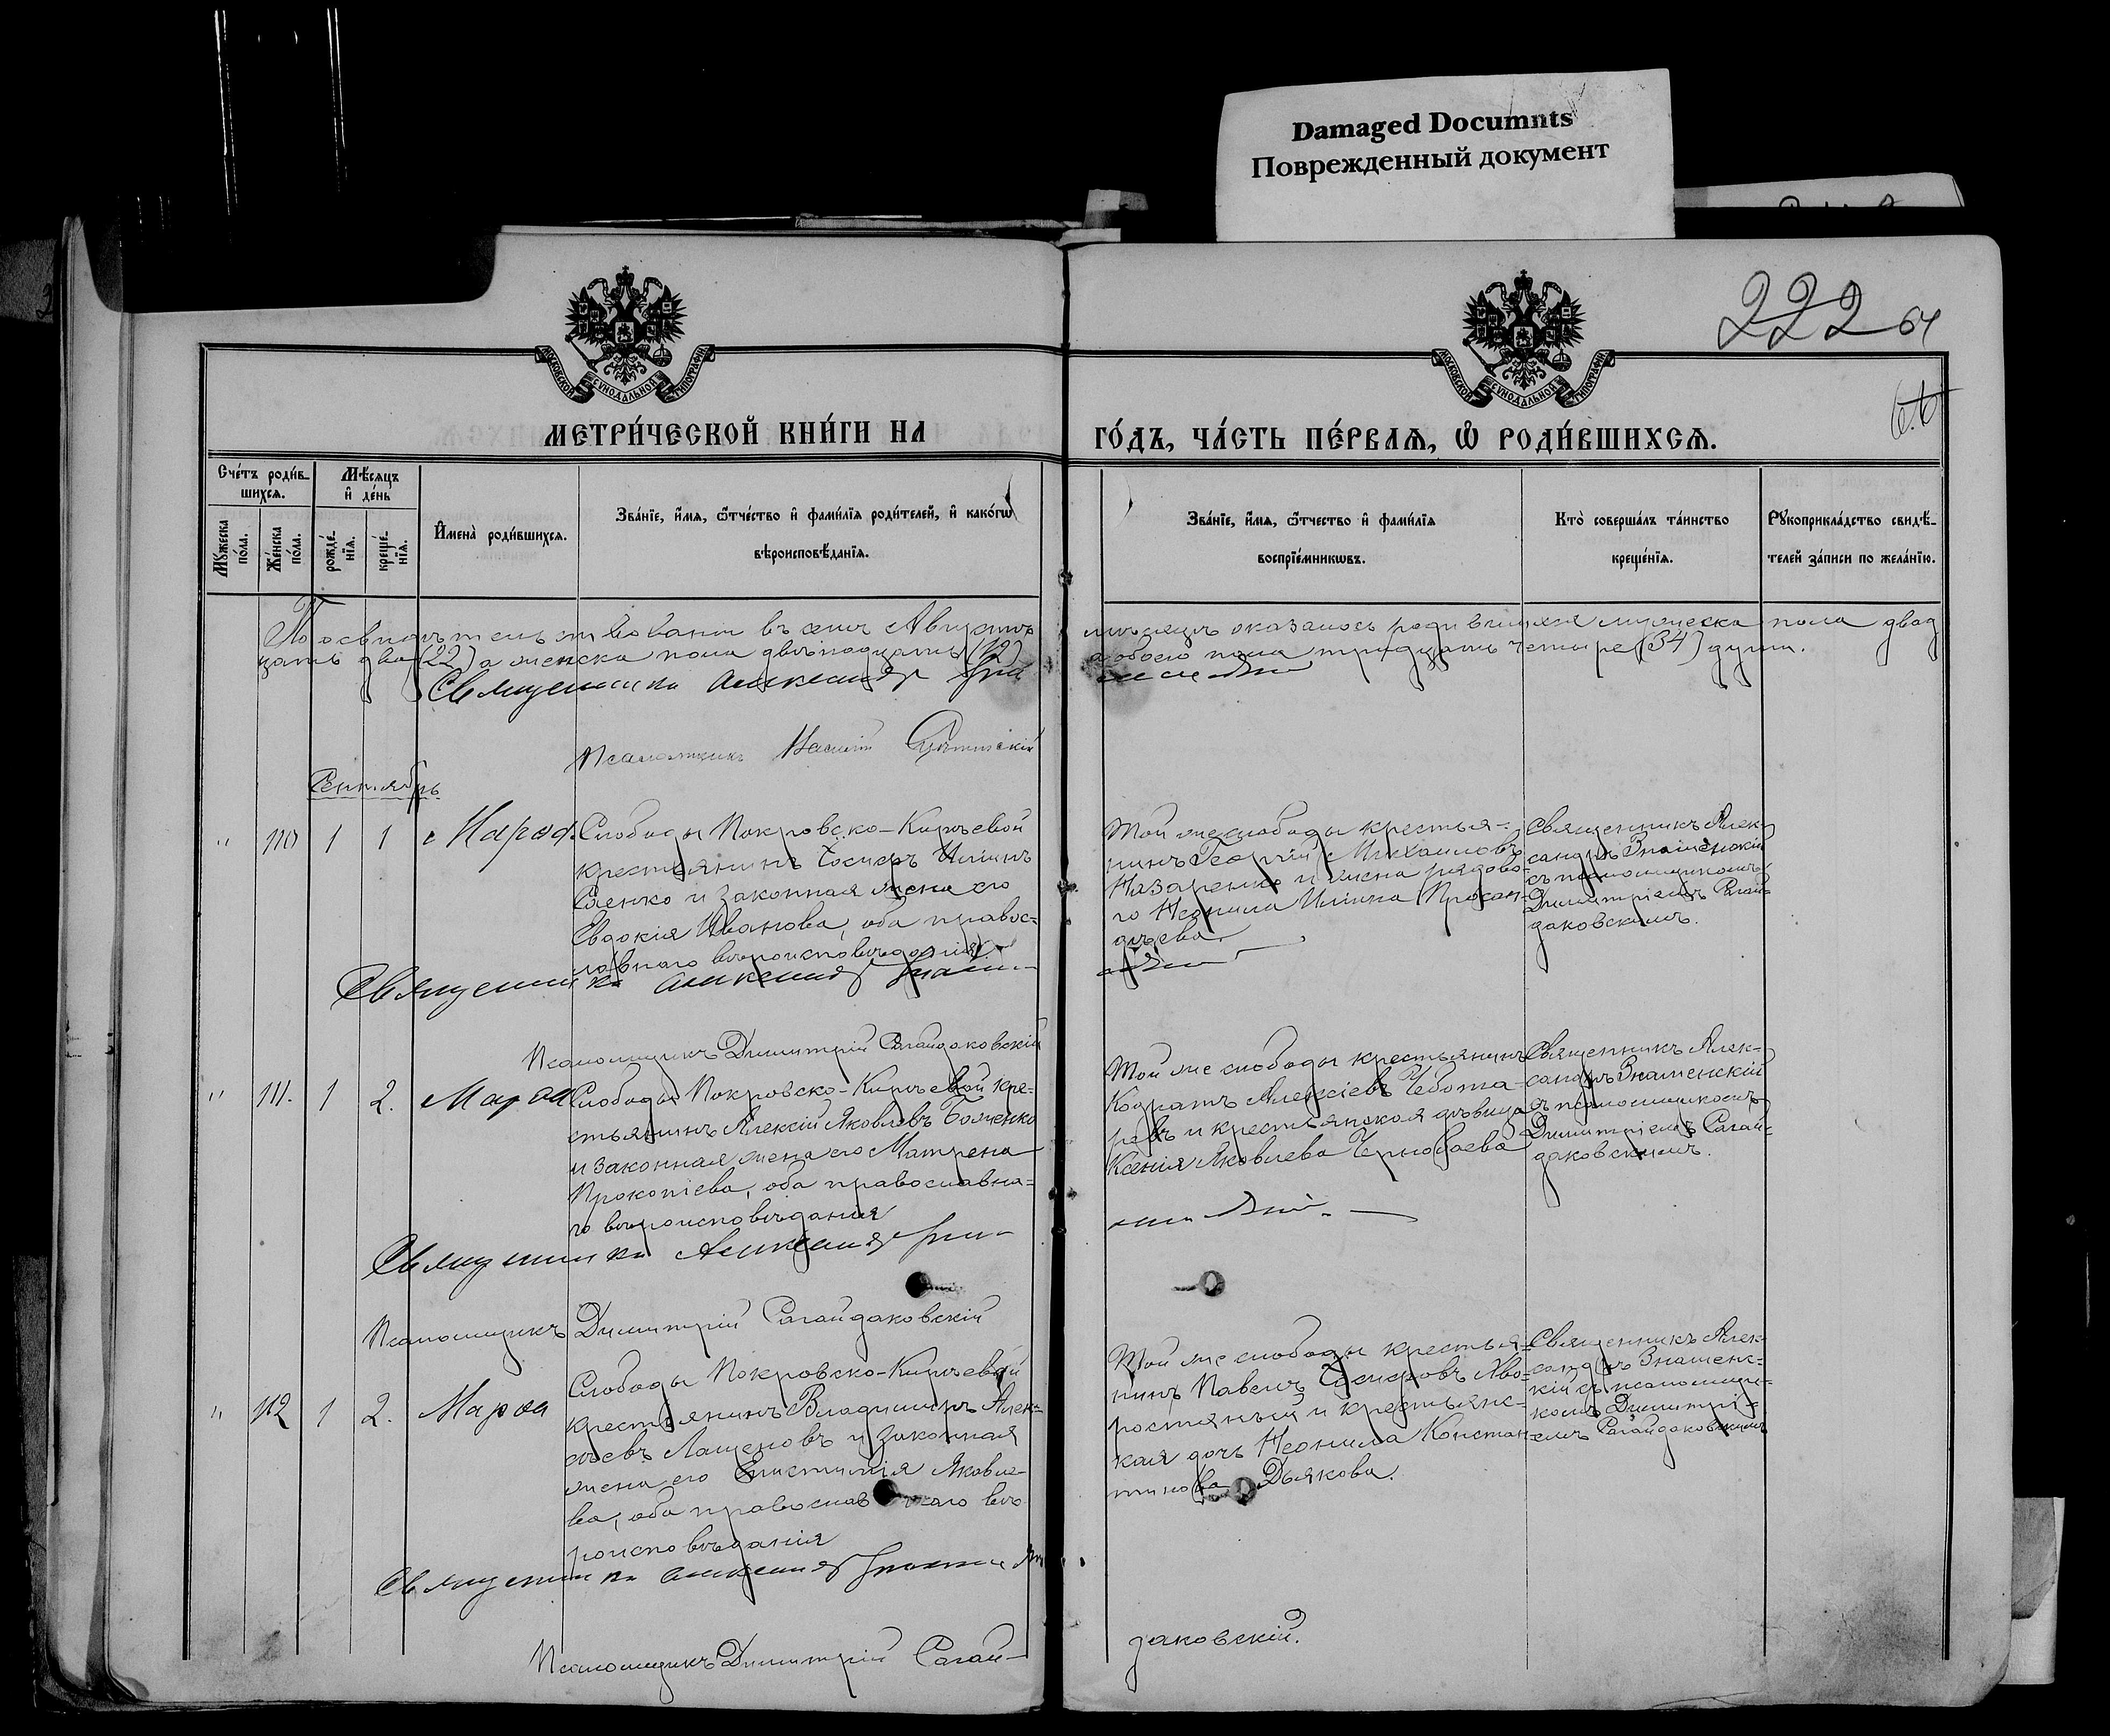 Damaged Documnts
Поврежденный документ
222 64
МОСКОВСКОЙ СУНОДАЛЬНОЙ ТИПОГРАФІИ
МОСКОВСКОЙ СУНОДАЛЬНОЙ ТИПОГРАФІИ
МЕТРИ́ЧЕСКОЙ КНИ́ГИ НА
ГО́ДЪ, ЧА́СТЬ ПЕ́РВАѦ, Ѡ҆ РОДИ́ВШИХСѦ.
Сче́тъ роди́в-
шихсѧ.
Мѣ́сѧцъ
и҆ де́нь
Мꙋ́жеска
по́ла.
Же́нска
по́ла.
рожде́-
нїѧ.
креще́-
нїѧ.
И҆мена̀ роди́вшихсѧ.
Зва́нїе, и҆́мѧ, ѻ҆́тчество и҆ фами́лїѧ роди́телей, и҆ како́гѡ
вѣроисповѣ́данїѧ.
Зва́нїе, и҆́мѧ, ѻ҆́тчество и҆ фами́лїѧ
воспрїе́мникѡвъ.
Кто̀ соверша́лъ та́инство
креще́нїѧ.
Рꙋкоприкла́дство свидѣ́-
телей за́писи по жела́нїю.
По освидѣтельствованіи въ семъ Августѣ мѣсяцѣ оказалось родившихся мужеска пола двад
цать два (22) а женска пола двѣнадцать (12) а обоего пола тридцать четыре (34) души.
Священникъ Александръ
Псаломщикъ
Сентябрь
" 110 1 1
Слободы Покровско-Кирѣевой
крестьянинъ Іосифъ Иліинъ
Саенко и законная жена его
Евдокія Иванова, оба правос=
лавнаго вѣроисповѣданія.
Той же слободы крестья=
нинъ Георгій Михаиловъ
Назаренко и жена рядово-
го Неонила Иліина
Священникъ Алек-
сандръ Знаменскій
съ псаломщикомъ
Димитріемъ Сагай-
даковскимъ.
Священникъ Александръ
Псаломщикъ Димитрій Сагайдаковскій
" 111. 1 2. Марѳа
Слободы Покровско-Кирѣевой кре-
стьянинъ Алексій Яковлевъ Боженко
и законная жена его Матрена
Прокопіева, оба православна=
го вѣроисповѣданія
Той же слободы крестьянинъ
Кодратъ Алексіевъ Чебота-
ревъ и крестьянская дѣвица
Ксенія Яковлева Чернобаева
Священникъ Алек-
сандръ Знаменскій
съ псаломщикомъ
Димитріемъ Сагай-
даковскимъ.
Священникъ Александръ
Псаломщикъ Димитрій Сагайдаковскій
" 112 1 2. Марѳа
Слободы Покровско-Кирѣевой
крестьянинъ Владиміръ Алек-
ѣевъ Лащеновъ и законная
жена его Епистимія Яковле-
ва, оба православнаго вѣ
роисповѣданія
Той же слободы крестья=
нинъ Павелъ Іосифовъ Яво-
ростяный и крестьянс-
кая дочь Неонила Констан-
тинова Дьякова.
Священникъ Алек-
сандръ Знаменс=
кій съ псаломщи-
комъ Димитрі-
емъ Сагайдаковскимъ
Священникъ Александръ
Псаломщикъ Димитрій Сагай-
даковскій.